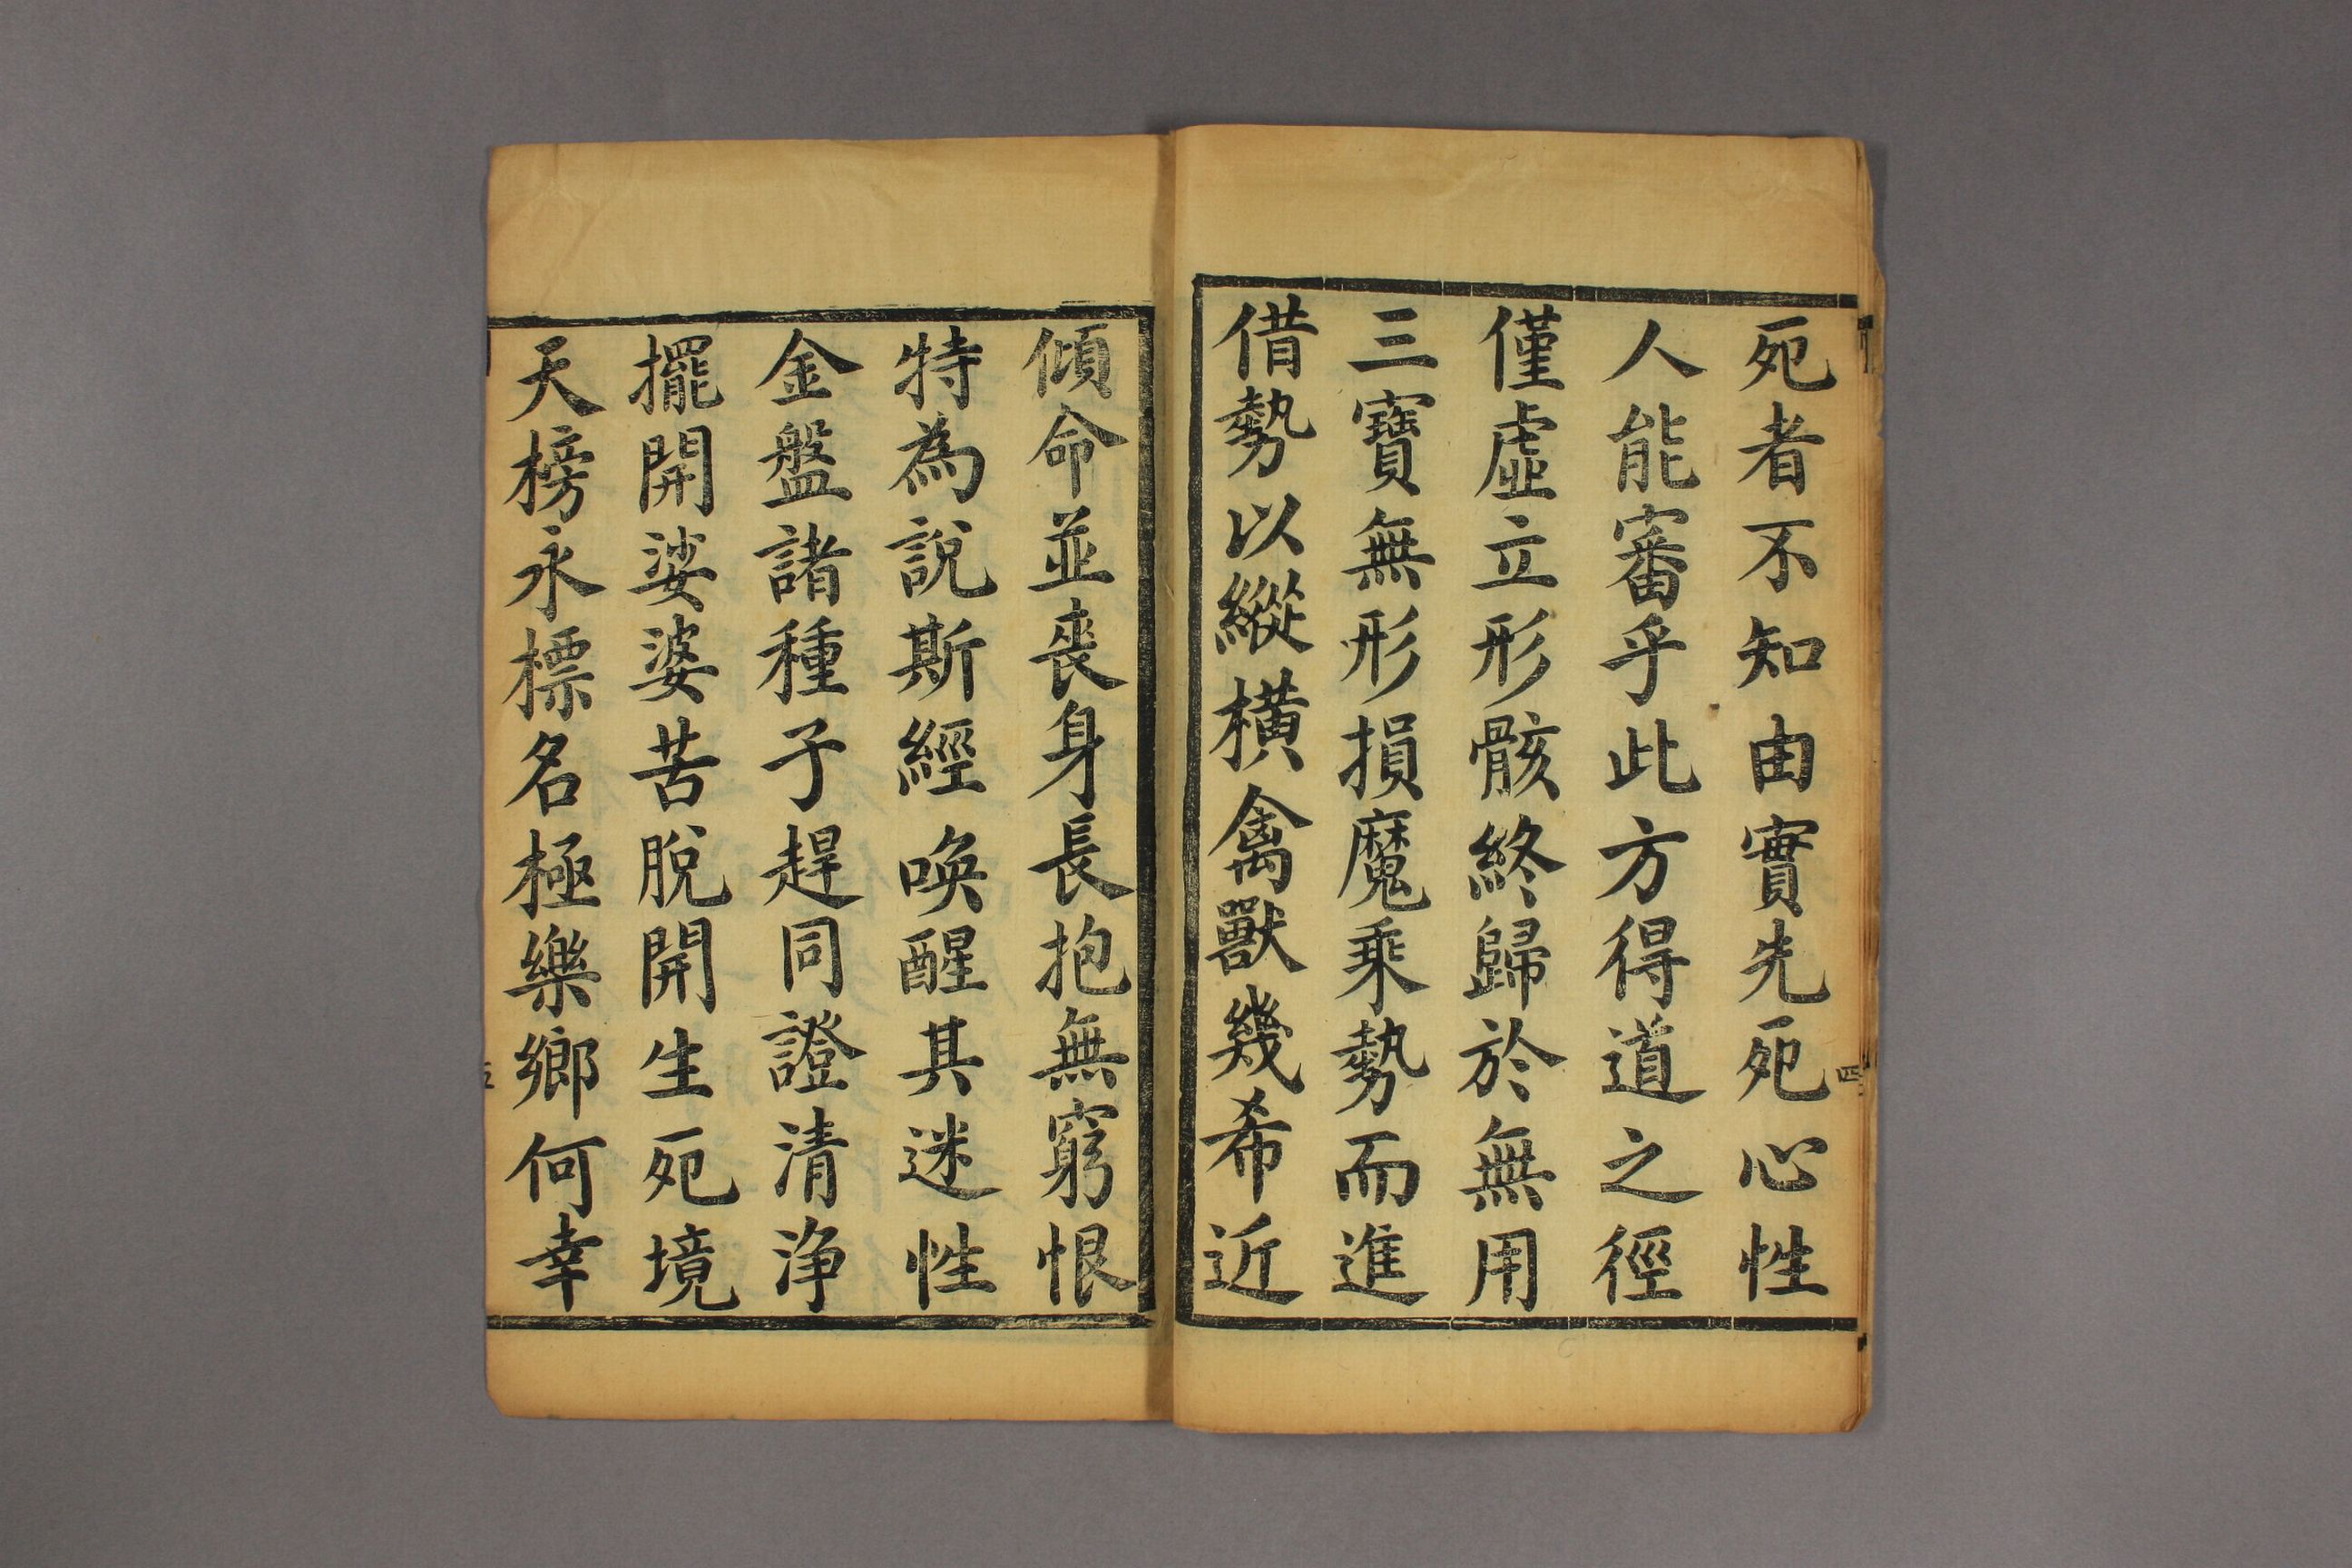 死者不知由實先死心性
人能審乎此方得道之徑
僅虛立形骸終歸於無用
三寶無形損魔乘勢而進
借勢以縱橫禽獸幾希近
四
傾命並喪身長抱無窮恨
特為說斯經喚醒其迷性
金盤諸種子趕同證清浄
擺開娑婆苦脫開生死境
天榜永標名極樂鄉何幸